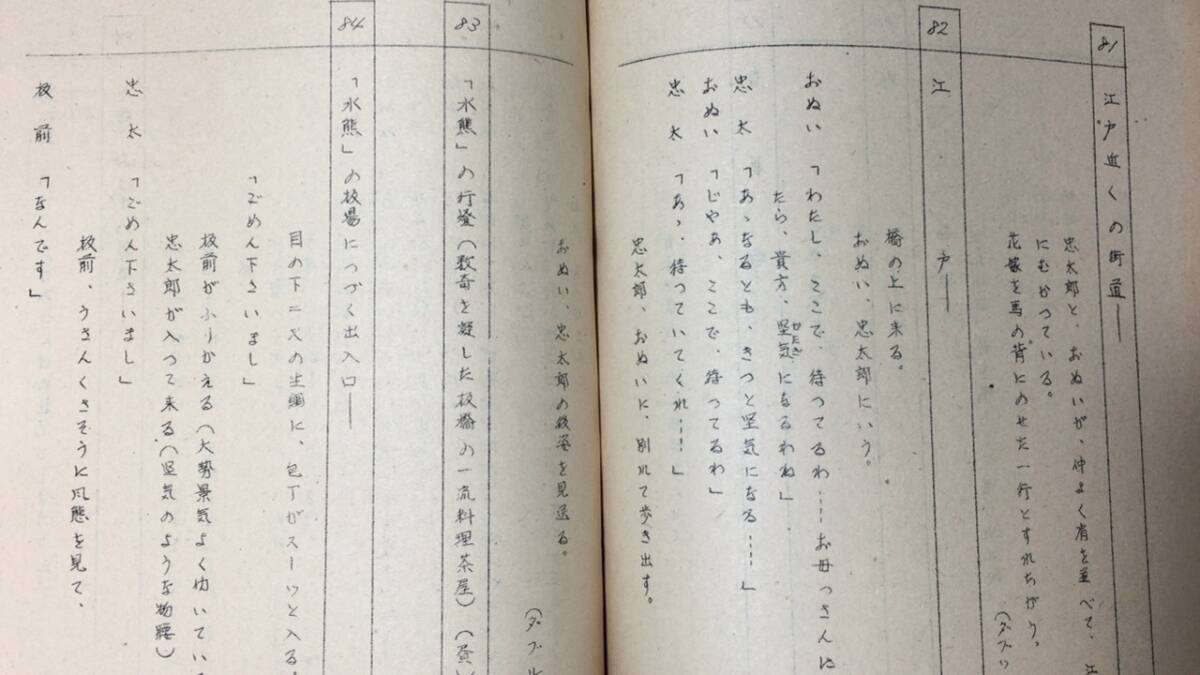 81 江戸近くの街道――
忠太郎と、おぬいが、仲よく肩を並べて、江
にむかつている。
花嫁を馬の背にのせた一行とすれちがう。
(ダブ
82 江戸――
橋の上に来る。
おぬい、忠太郎にいう。
おぬい「わたし、ここで、待つてるわ……お母つさんに
たら、貴方、堅気になるわね」
忠太「あゝなるとも、きつと堅気になる……」
おぬい「じやあ、ここで、待つてるわ」
忠太「あゝ、待つていてくれ……」
忠太郎、おぬいに、別れて歩き出す。
おぬい、忠太郎の後姿を見送る。
(ダブル
83 「水熊」の行燈(数奇を凝した板橋の一流料理茶屋)(昼)
84 「水熊」の板場につづく出入口――
目の下二尺の生鯛に、包丁がスーツと入る。
「ごめん下さいまし」
板前がふりかえる(大勢景気よくゆいている
忠太郎が入つて来る(堅気のような物腰)
忠太「ごめん下さいまし」
板前、うさんくさそうに風態を見て、
板前「なんです」